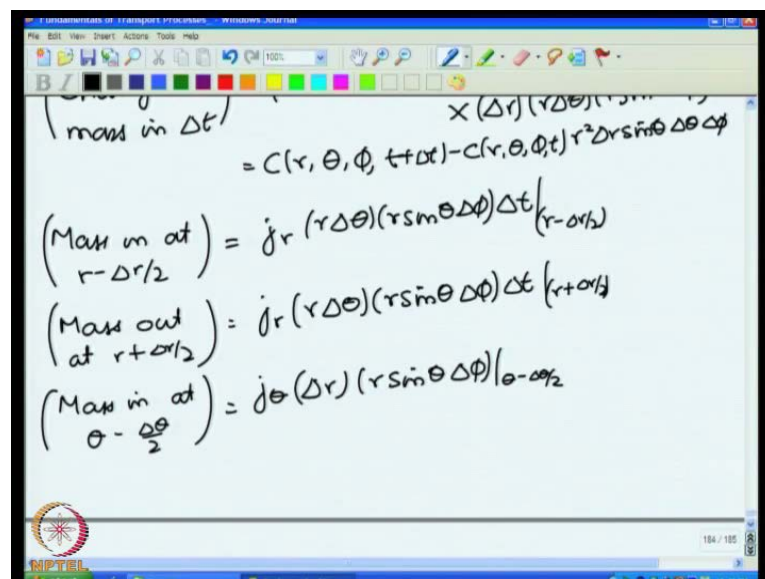 Fundamentals of Transport Processes_ - Windows Journal
File Edit View Insert Actions Tools Help
100%
B I
mass in Δt
× (Δr) (rΔθ)
= C(r, θ, ϕ, t+Δt) - C(r, θ, ϕ, t) r² Δr sinθ Δθ Δϕ
(Mass in at r-Δr/2) = jr (rΔθ)(r sinθ Δϕ) Δt |(r-Δr/2)
(Mass out at r+Δr/2) = jr (rΔθ)(r sinθ Δϕ) Δt |(r+Δr/2)
(Mass in at θ - Δθ/2) = jθ (Δr) (r sinθ Δϕ)|θ-Δθ/2
184 / 185
NPTEL